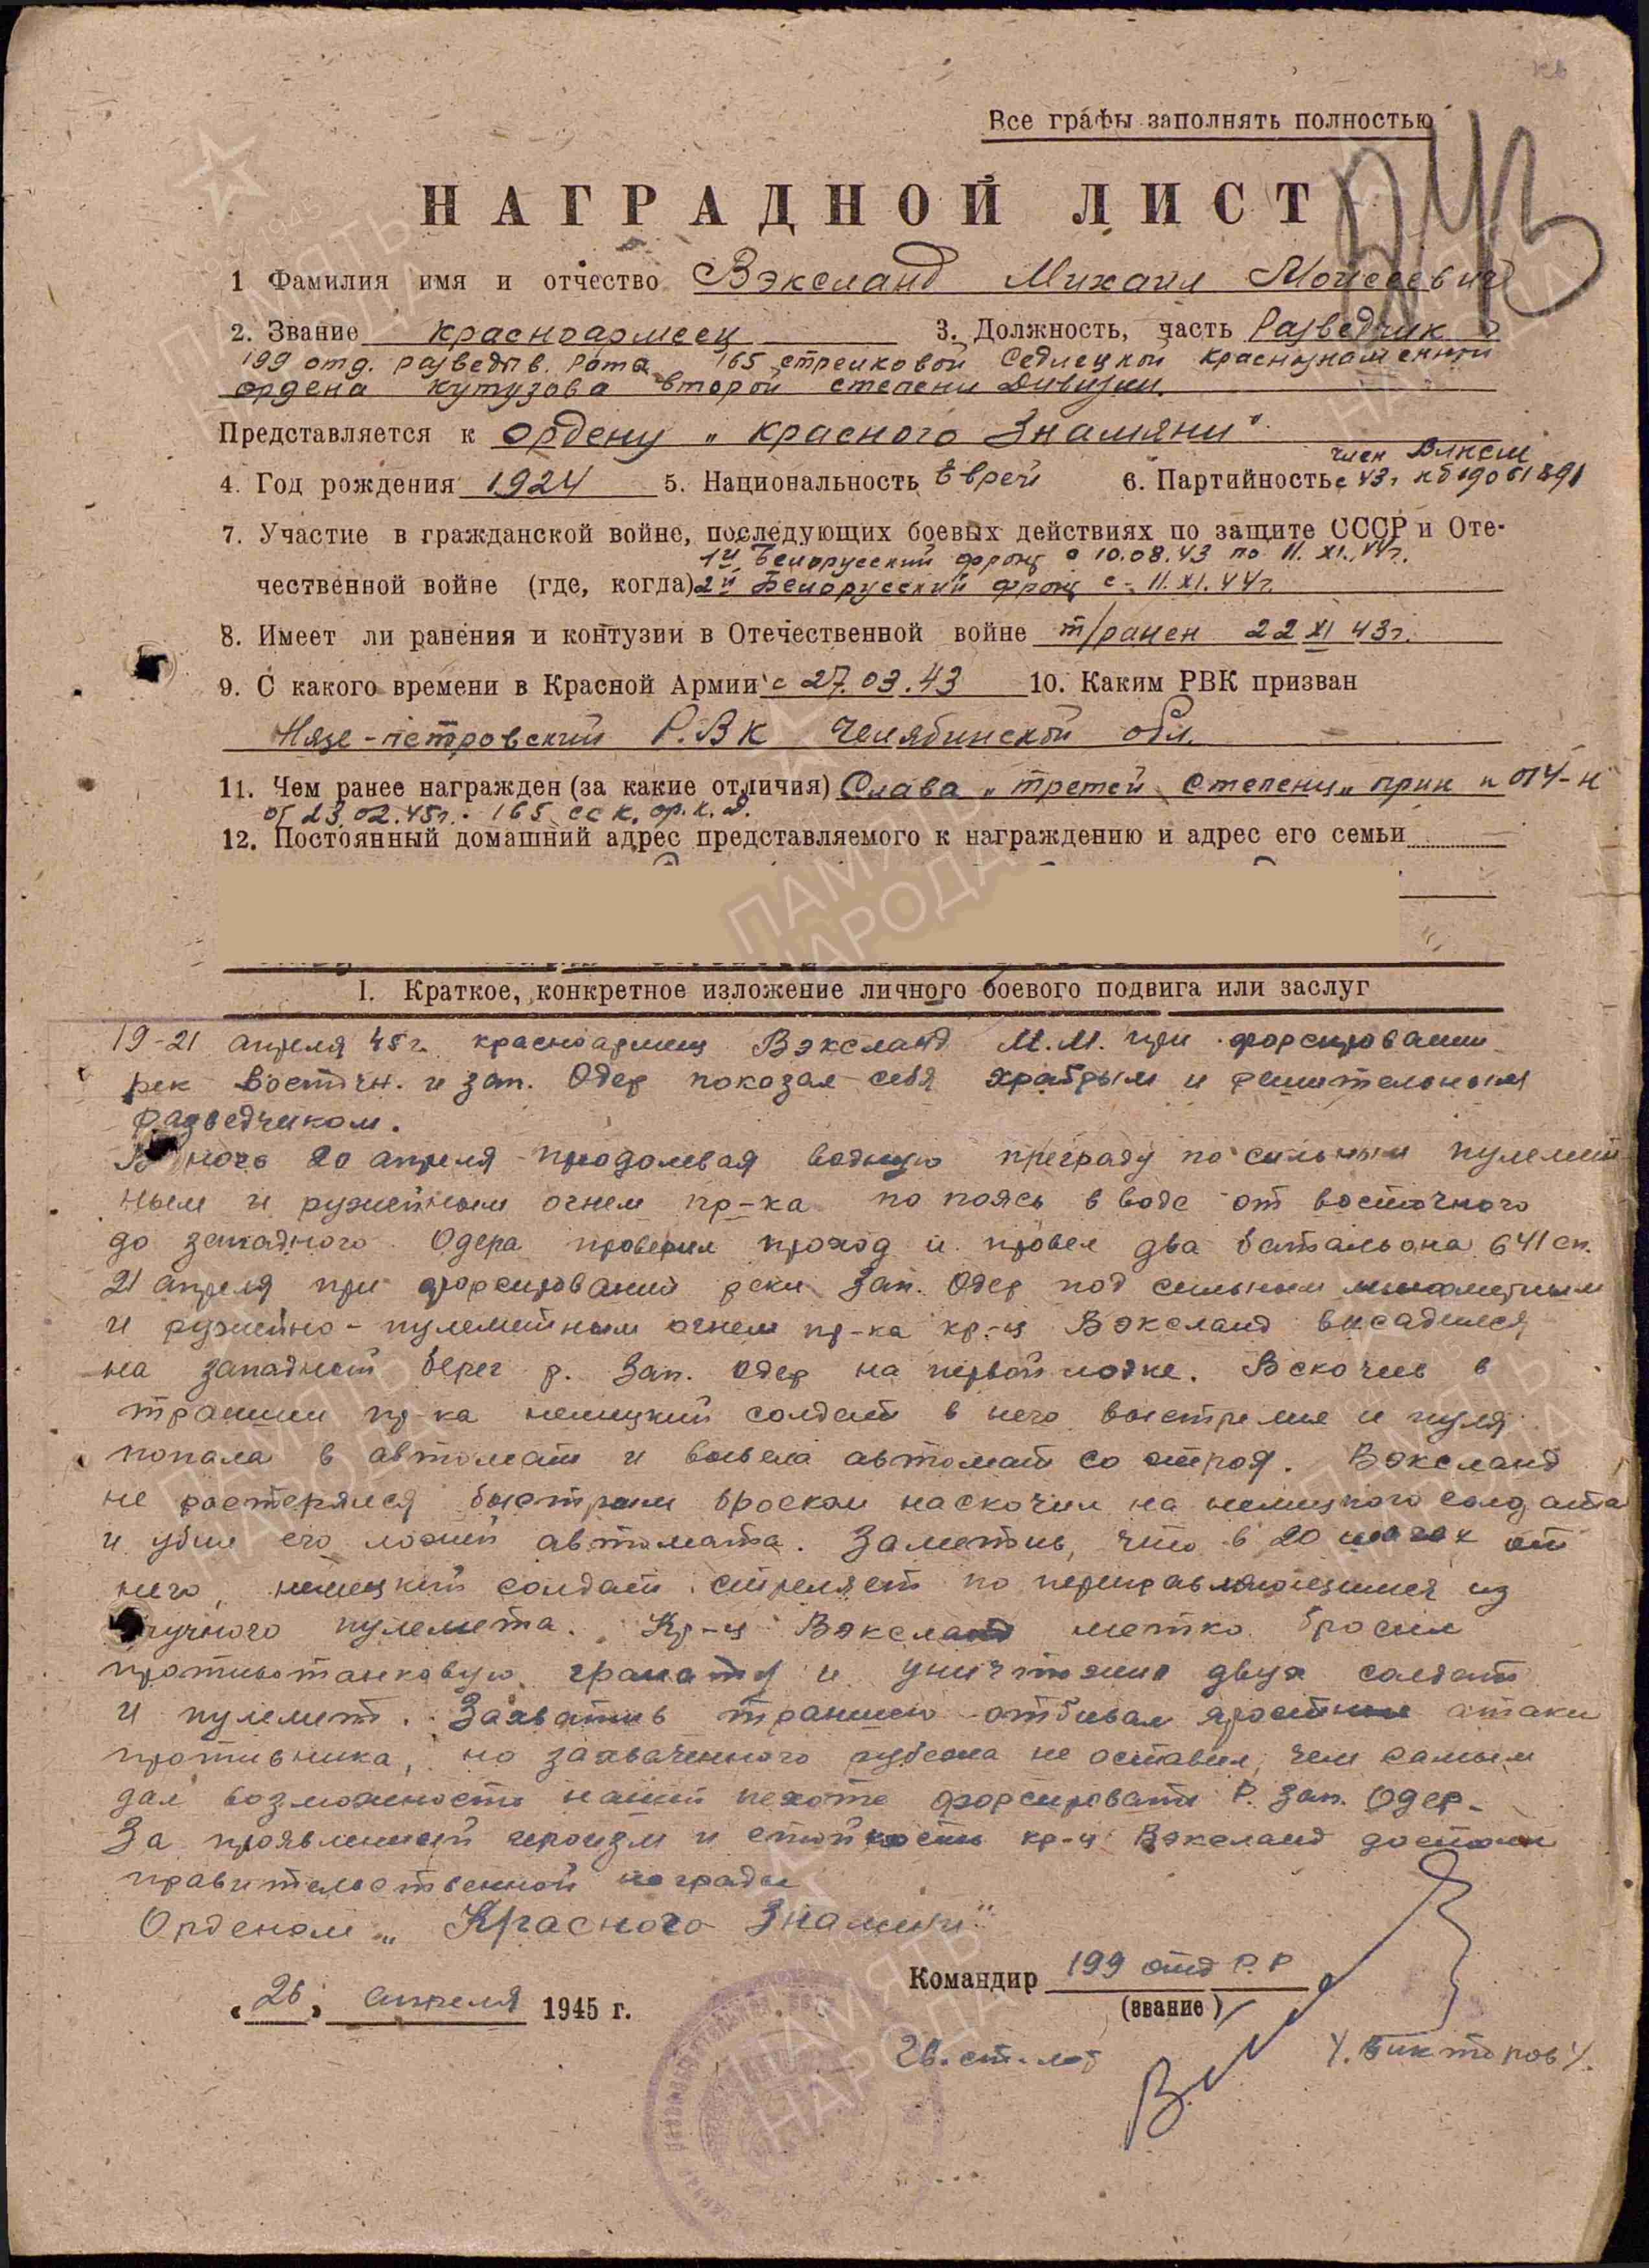 Все графы заполнять полностью
НАГРАДНОЙ ЛИСТ
1 Фамилия имя и отчество Вэксланд Михаил Моисеевич
2. Звание красноармеец 3. Должность, часть Разведчик
199 отд. разведыв. рота 165 стрелковой Седлецкой краснознаменной
ордена кутузова второй степени Дивизии.
Представляется к ордену „красного Знамяни"
член ВЛКСМ
4. Год рождения 1924 5. Национальность Еврей 6. Партийность с 43г кб 19061891
7. Участие в гражданской войне, последующих боевых действиях по защите СССР и Оте-
1й Белорусский фронт с 10.08.43 по 11.XI.44г.
чественной войне (где, когда) 2й Белорусский фронт с 11.XI.44г.
8. Имеет ли ранения и контузии в Отечественной войне т/ранен 22 XI 43г.
9. С какого времени в Красной Армии с 27.03.43 10. Каким РВК призван
Нязе-петровский Р.В.К Челябинской обл.
11. Чем ранее награжден (за какие отличия) Слава „третей степени„ прик н 014-н
от 23.02.45г. 165 сс к. ор. к. д.
12. Постоянный домашний адрес представляемого к награждению и адрес его семьи
I. Краткое, конкретное изложение личного боевого подвига или заслуг
19-21 апреля 45г. красноармеец Вэксланд М.М. при форсировании
рек Восточн. и зап. Одер показал себя храбрым и решительным
разведчиком.
В ночь 20 апреля продолевая водную преграду по сильным пулемет
ным и ружейным огнем пр-ка по поясь в воде от восточного
до западного Одера проверил проход и провел два батальона 641 сп.
21 апреля при форсировании реки Зап. Одер под сильным минометным
и ружейно-пулеметным огнем пр-ка кр-ц Вэксланд высадился
на западный берег р. Зап. Одер на первой лодке. Вскочив в
траншеи пр-ка немецкий солдат в него выстрелил и пуля
попала в автомат и вывела автомат со строя. Вэксланд
не ростерялся быстрым броском наскочил на немецкого солдата
и убил его ложей автомата. Заметив, что в 20 шагах от
него, немецкий солдат стреляет по переправляющимся из
ручного пулемета. Кр-ц Вэксланд метко бросил
противотанковую гранату и уничтожил двух солдат
и пулемет. Захватив траншею отбивал яростные атаки
противника, но захваченного рубежа не оставил, чем самым
дал возможность нашей пехоте форсировать р. Зап. Одер.
За проявленный героизм и стойкость кр-ц Вэксланд достоин
правительственной награды
Орденом „Красного Знамени"
„26" апреля 1945 г.
Командир 199 отд Р.Р
(звание)
Гв. ст. л-т
/Викторов/.
ПАМЯТЬ НАРОДА